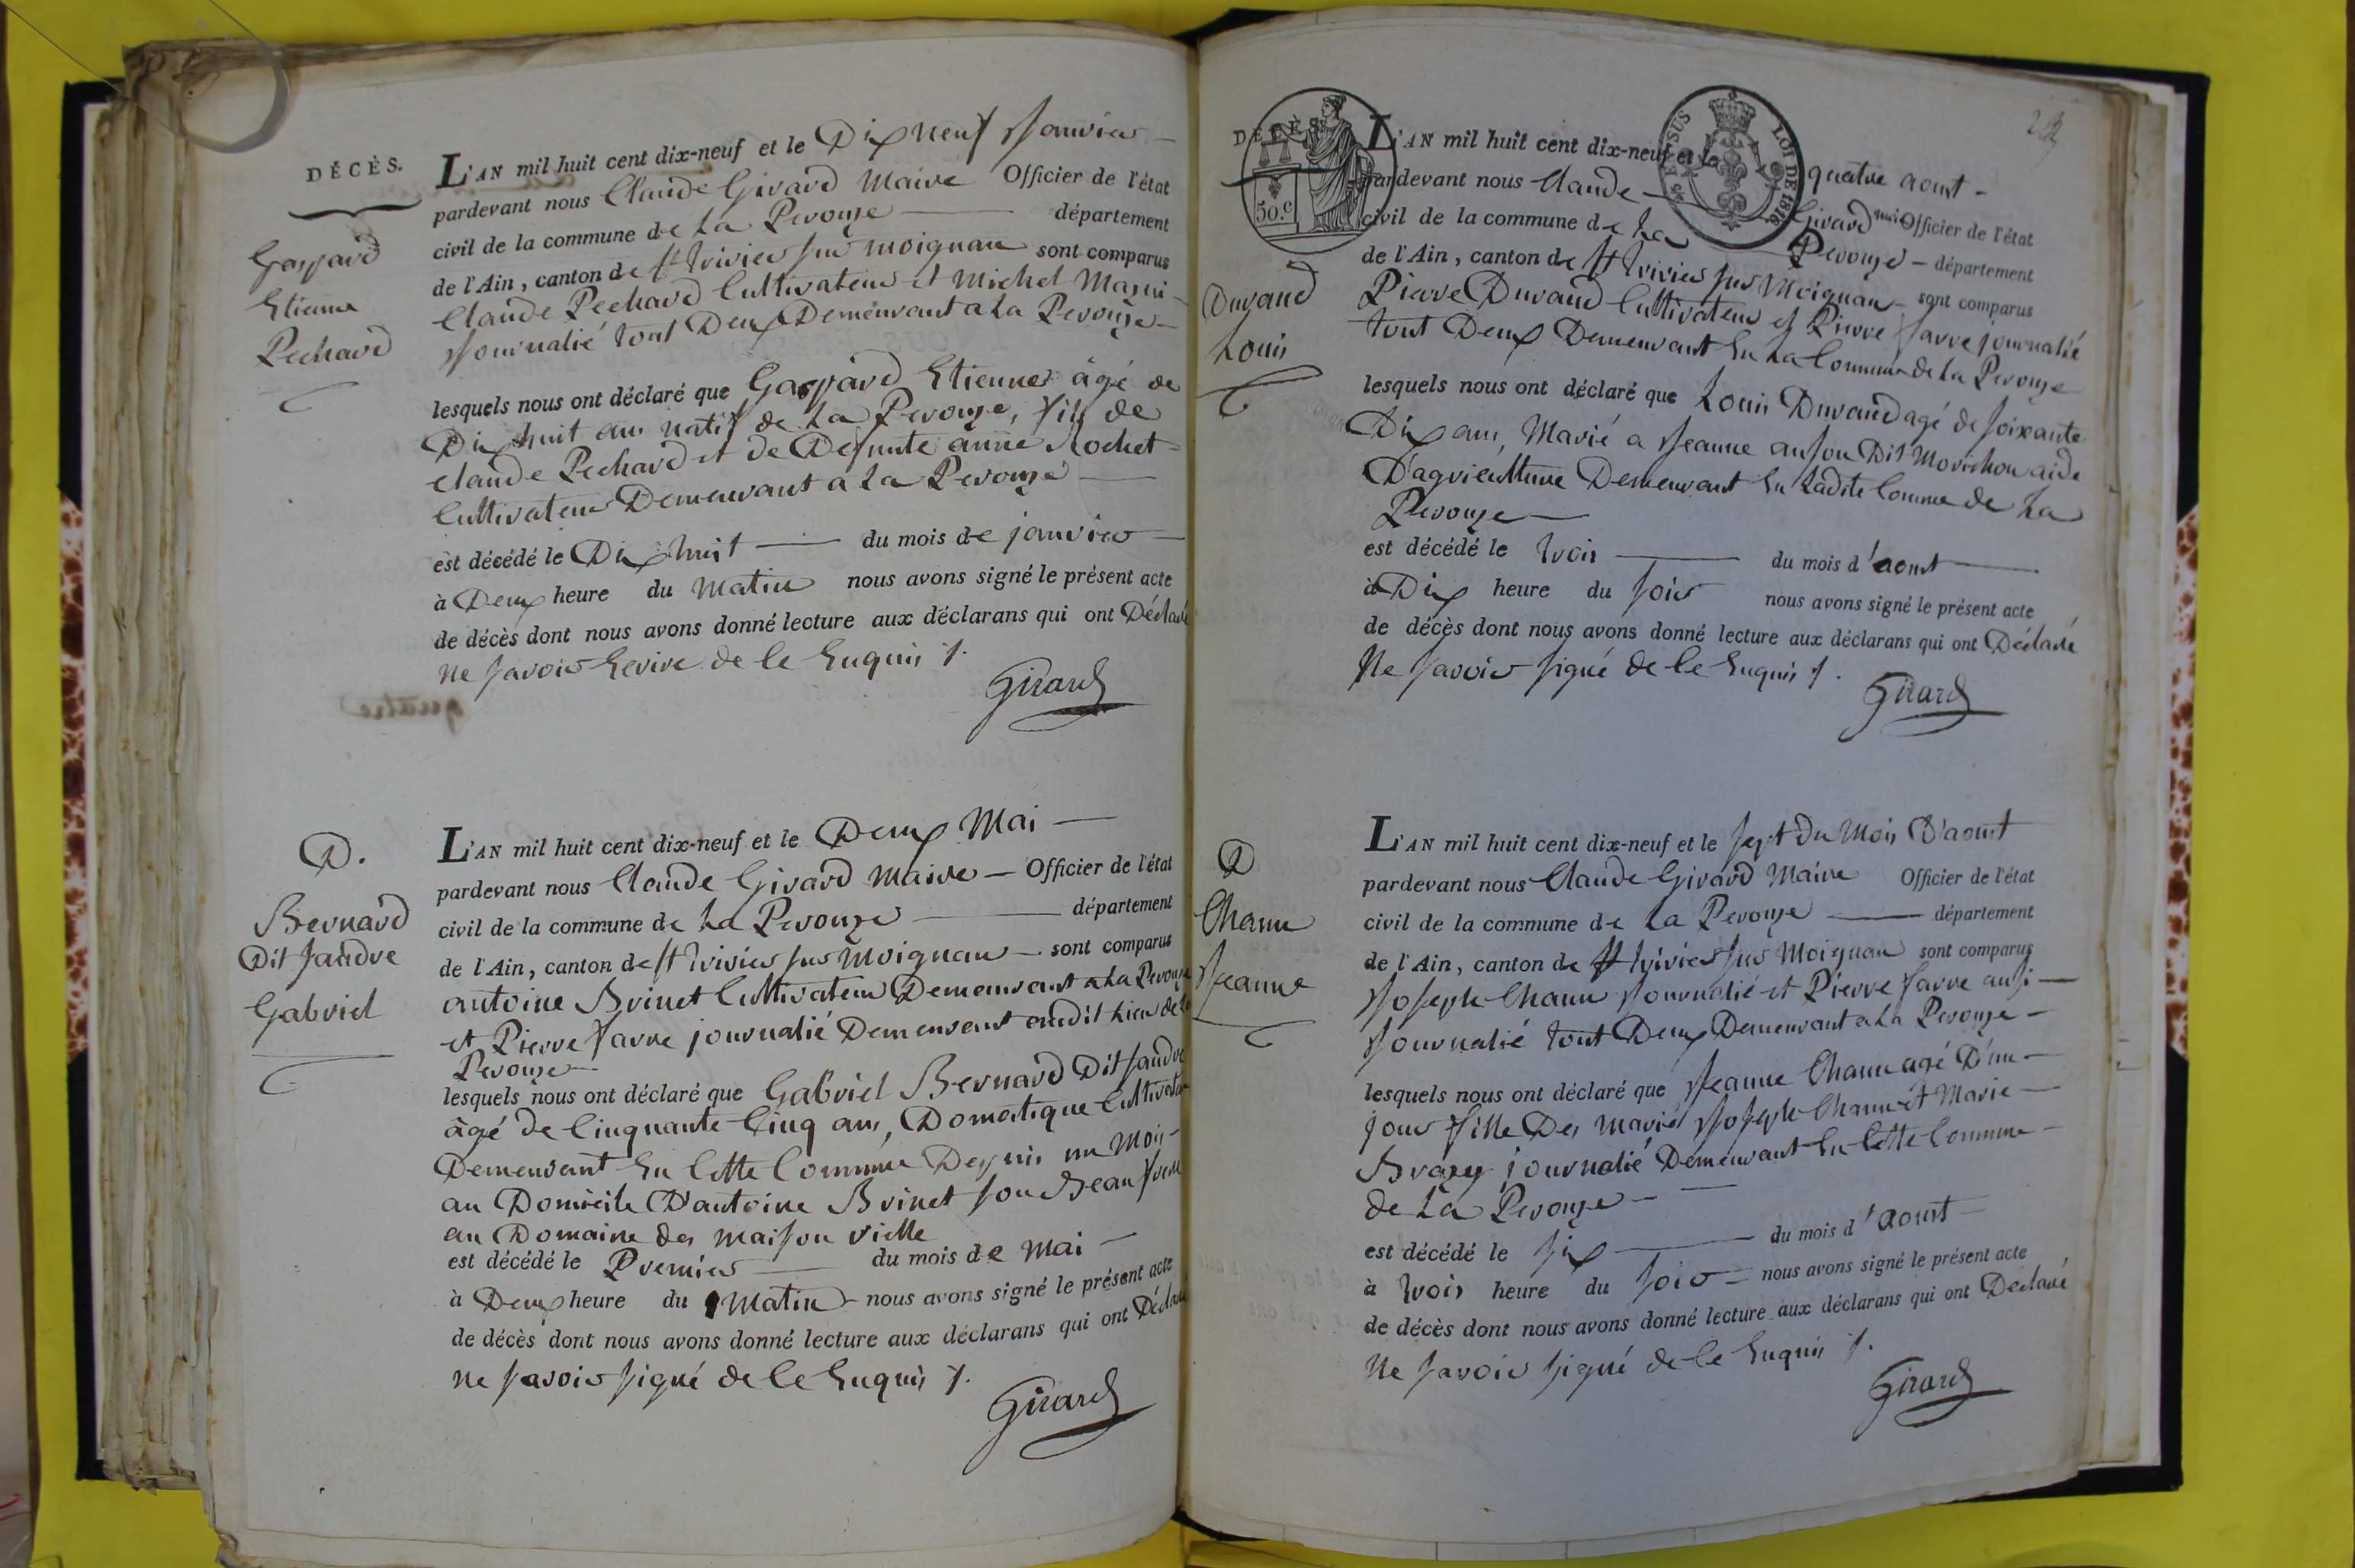 DÉCÈS.
Gaspard
Etienne
Pechard
L'AN mil huit cent dix-neuf et le Dix neuf Janvier
pardevant nous Claude Girard Maire Officier de l'état
civil de la commune de La Perouze département
de l'Ain, canton de St trivier sur moignan sont comparus
Claude Pechard Cultivateur et Michel
Journalié tout Deux Demeurant a La Perouze
lesquels nous ont déclaré que Gaspard Etienne âgé de
Dix huit ans natif de La Perouze, fils de
claude Pechard et de Defunte anne Rochet
Cultivateur Demeurant a La Perouze
est décédé le Dix huit du mois de janvier
à Deux heure du Matin nous avons signé le présent acte
de décès dont nous avons donné lecture aux déclarans qui ont Déclaré
ne savoir Ecrire de ce Enquis
Girard
D.
Bernard
Dit Jandre
Gabriel
L'AN mil huit cent dix-neuf et le Deux Mai
pardevant nous Claude Girard Maire Officier de l'état
civil de la commune de La Perouze département
de l'Ain, canton de St trivier sur Moignan sont comparus
antoine Brinet Cultivateur Demeurant a La Perouze
et Pierre farre journalié Demeurant audit Lieu de La
Perouze
lesquels nous ont déclaré que Gabriel Bernard Dit Jandre
âgé de Cinquante Cinq ans, Domestique Cultivateur
Demeurant En Cette Commune Depuis un Mois
au Domicile D'antoine Brinet son Beau frere
au Domaine des maison vielle
est décédé le Premier du mois de Mai
à Deux heure du Matin nous avons signé le présent acte
de décès dont nous avons donné lecture aux déclarans qui ont Déclaré
ne savoir signé de ce Enquis
Girard
DÉCÈS
50.c
EN SUS
LOI DE 1816
Durand
Louis
L'AN mil huit cent dix-neuf et le quatre aoust
pardevant nous Claude Girard Officier de l'état
civil de la commune de La Perouze département
de l'Ain, canton de St trivier sur Moignan sont comparus
Pierre Durand Cultivateur et Pierre farre journalié
tout Deux Demeurant En La Commune de La Perouze
lesquels nous ont déclaré que Louis Durand agé de soixante
Dix ans, Marié a Jeanne anson Dit Morichon aide
D'agriculture Demeurant En Ladite Comme de La
Perouze
est décédé le trois du mois d'aoust
à Dix heure du soir nous avons signé le présent acte
de décès dont nous avons donné lecture aux déclarans qui ont Déclaré
Ne savoir signé de ce Enquis
Girard
D
Chanu
Jeanne
L'AN mil huit cent dix-neuf et le sept du Mois D'aoust
pardevant nous Claude Girard Maire Officier de l'état
civil de la commune de La Perouze département
de l'Ain, canton de St trivier sur Moignan sont comparus
Joseph Chanu Journalié et Pierre farre aussi
Journalié tout Deux Demeurant a La Perouze
lesquels nous ont déclaré que Jeanne Chanu agé D'un
jour fille Des marié Joseph Chanu et Marie
Brazy journalié Demeurant En Cette Commune
de La Perouze
est décédé le six du mois d'aoust
à trois heure du soir nous avons signé le présent acte
de décès dont nous avons donné lecture aux déclarans qui ont Déclaré
Ne savoir signé de ce Enquis
Girard